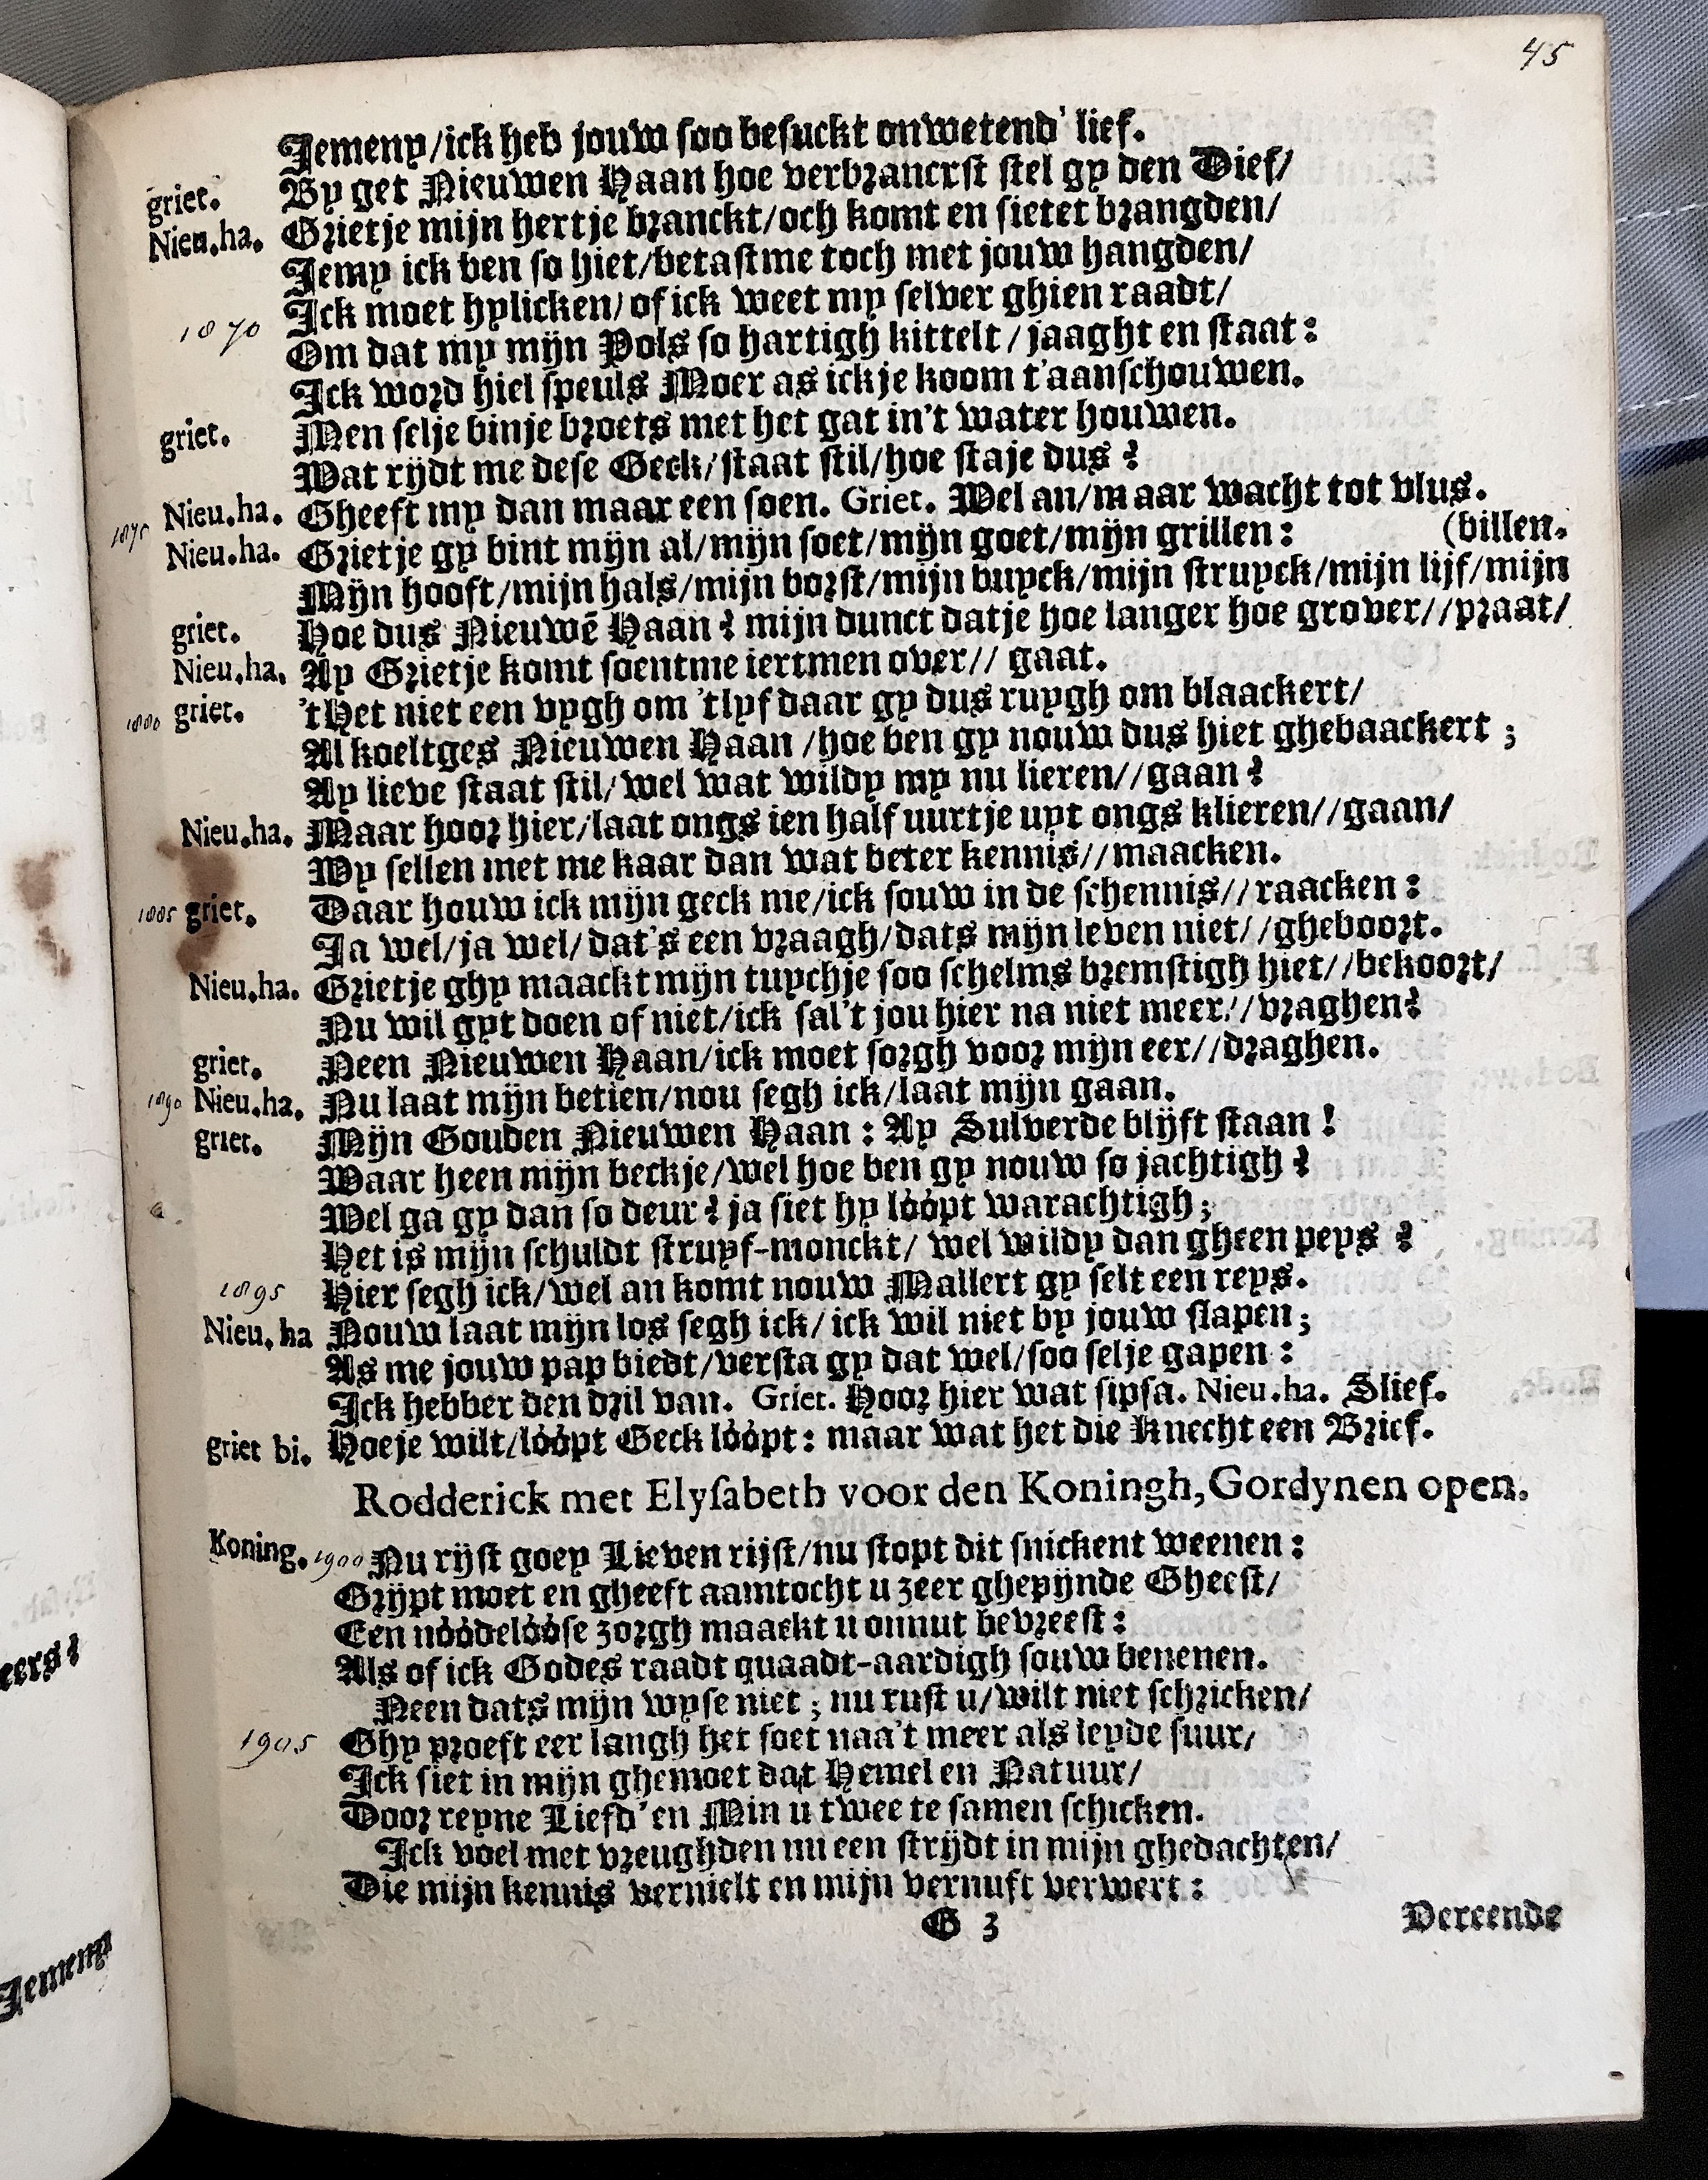 45
Jemeny/ick heb jouw soo besuckt onwetend' lief.
griet. By get Nieuwen Haan hoe verbrancrst stel gy den Dief/
Nieu.ha. Grietje mijn hertje branckt/och komt en sietet brangden/
Jemy ick ben so hiet/betastme toch met jouw hangden/
Ick moet hylicken/of ick weet my selver ghien raadt/
1870 Om dat my mijn Pols so hartigh kittelt/jaaght en staat:
Ick word hiel speuls Moer as ick je koom t'aanschouwen.
griet. Men selje binje broets met het gat in't water houwen.
Wat rijdt me dese Geck/staat stil/hoe staje dus?
Nieu.ha. Gheeft my dan maar een soen. Griet. Wel an/maar wacht tot vlus.
1875 Nieu.ha. Grietje gy bint mijn al/mijn soet/mijn goet/mijn grillen: (billen.
Mijn hooft/mijn hals/mijn borst/mijn buyck/mijn struyck/mijn lijf/mijn
griet. Hoe dus Nieuwē Haan? mijn dunct datje hoe langer hoe grover//praat/
Nieu.ha. Ay Grietje komt soentme iertmen over// gaat.
1880 griet. 't Het niet een vygh om 'tlyf daar gy dus ruygh om blaackert/
Al koeltges Nieuwen Haan/hoe ben gy nouw dus hiet ghebaackert;
Ay lieve staat stil/wel wat wildy my nu lieren//gaan?
Nieu.ha. Maar hoor hier/laat ongs ien half uurtje uyt ongs klieren//gaan/
Wy sellen met me kaar dan wat beter kennis//maacken.
1885 griet. Daar houw ick mijn geck me/ick souw in de schennis//raacken:
Ja wel/ja wel/dat's een vraagh/dats mijn leven niet//gheboort.
Nieu.ha. Grietje ghy maackt mijn tuychje soo schelms bremstigh hiet//bekoort/
Nu wil gyt doen of niet/ick sal't jou hier na niet meer//vraghen?
griet. Neen Nieuwen Haan/ick moet sorgh voor mijn eer//draghen.
1890 Nieu.ha. Nu laat mijn betien/nou segh ick/laat mijn gaan.
griet. Mijn Gouden Nieuwen Haan: Ay Sulverde blijft staan!
Waar heen mijn beckje/wel hoe ben gy nouw so jachtigh?
Wel ga gy dan so deur? ja siet hy lóópt warachtigh;
Het is mijn schuldt struyf-monckt/wel wildy dan gheen peys?
1895 Hier segh ick/wel an komt nouw Mallert gy selt een reys.
Nieu. ha Nouw laat mijn los segh ick/ick wil niet by jouw slapen;
As me jouw pap biedt/versta gy dat wel/soo selje gapen:
Ick hebber den dril van. Griet. Hoor hier wat sipsa. Nieu.ha. Slief.
griet bi. Hoeje wilt/lóópt Geck lóópt: maar wat het die Knecht een Brief.
Rodderick met Elysabeth voor den Koningh, Gordynen open.
Koning. 1900 Nu rijst goey Lieven rijst/nu stopt dit snickent weenen:
Grijpt moet en gheeft aamtocht u zeer ghepijnde Gheest/
Een nóódelóóse zorgh maackt u onnut bevreest:
Als of ick Godes raadt quaadt-aardigh souw benenen.
Neen dats mijn wyse niet; nu rust u/wilt niet schricken/
1905 Ghy proeft eer langh het soet naa't meer als leyde suur/
Ick siet in mijn ghemoet dat Hemel en Natuur/
Door reyne Liefd' en Min u twee te samen schicken.
Ick voel met vreughden nu een strijdt in mijn ghedachten/
Die mijn kennis vernielt en mijn vernuft verwert:
G 3 Vereende
eers?
Jemeny